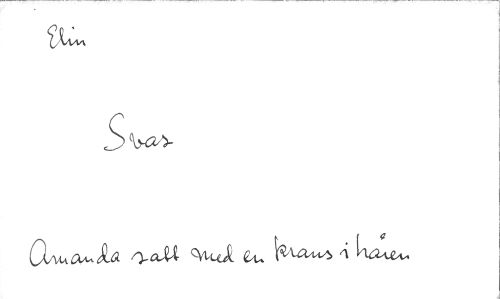 Elin
Svar
Amanda satt med en krans i håren